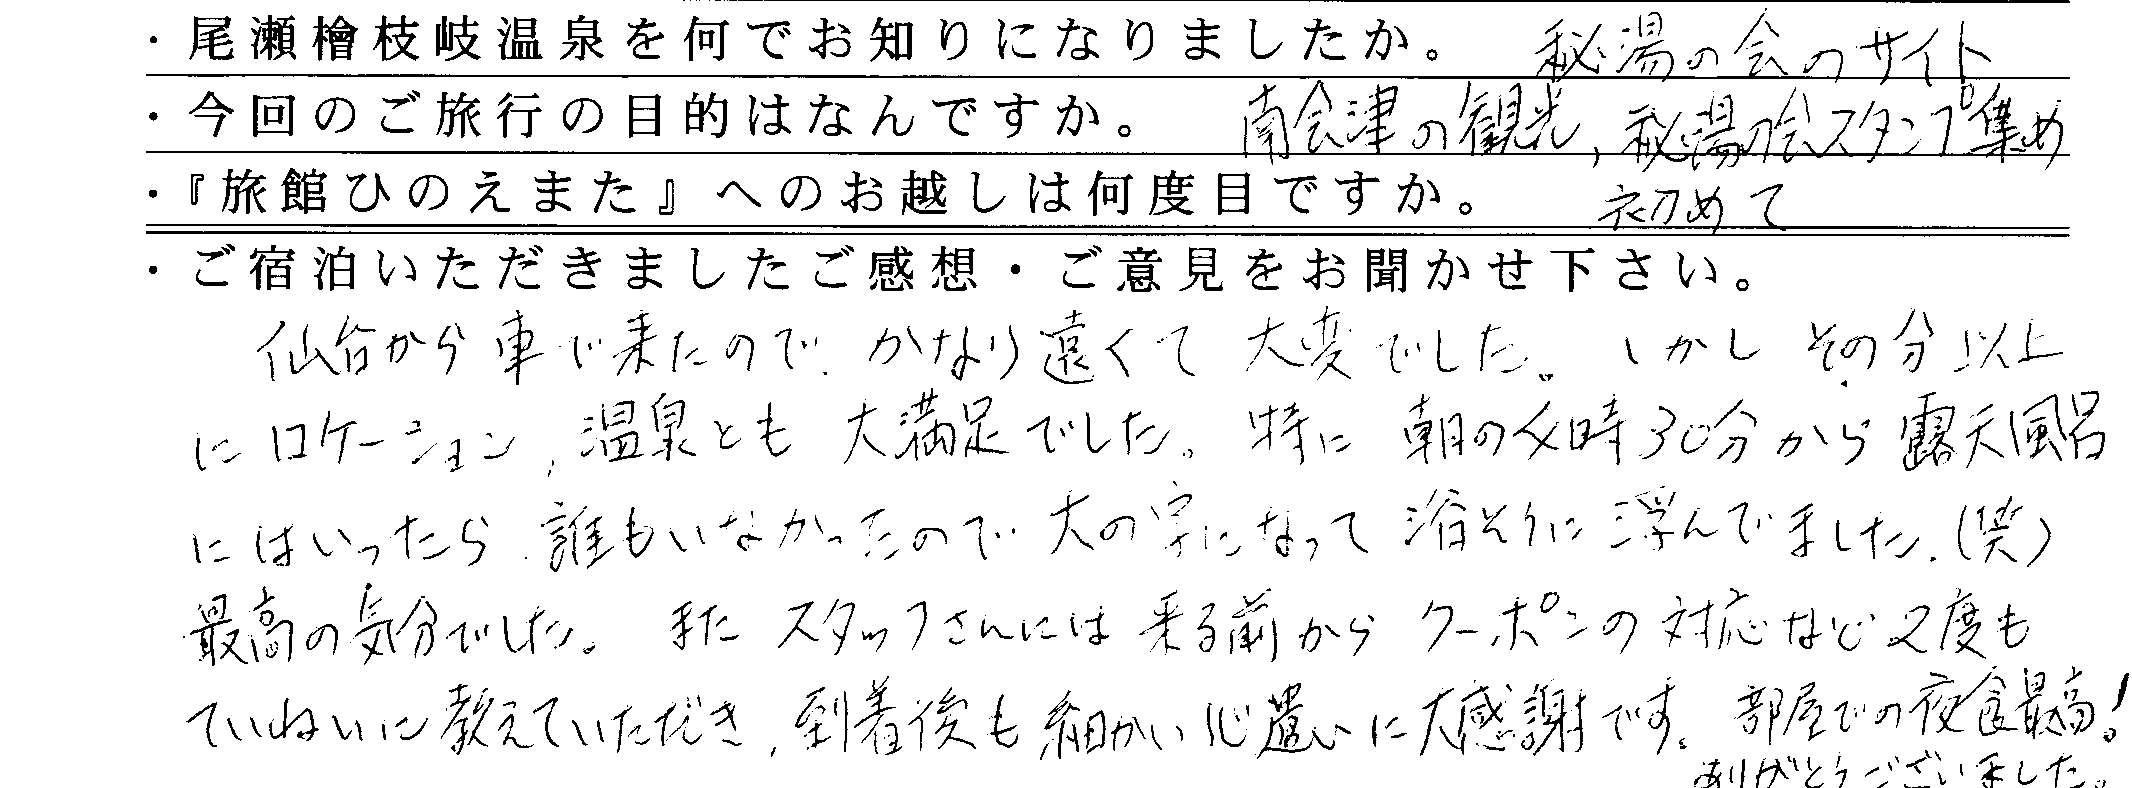 ・尾瀬檜枝岐温泉を何でお知りになりましたか。 秘湯の会のサイト
・今回のご旅行の目的はなんですか。 南会津の観光、秘湯の会スタンプ集め
・『旅館ひのえまた』へのお越しは何度目ですか。 初めて
・ご宿泊いただきましたご感想・ご意見をお聞かせ下さい。
仙台から車で来たので、かなり遠くて大変でした。しかしその分以上
にロケーション、温泉とも大満足でした。特に朝の4時30分から露天風呂
にはいったら、誰もいなかったので、大の字になって浴そうに浮んでました。(笑)
最高の気分でした。またスタッフさんには来る前からクーポンの対応など2度も
ていねいに教えていただき、到着後も細かい心遣いに大感謝です。部屋での夜食最高!
ありがとうございました。